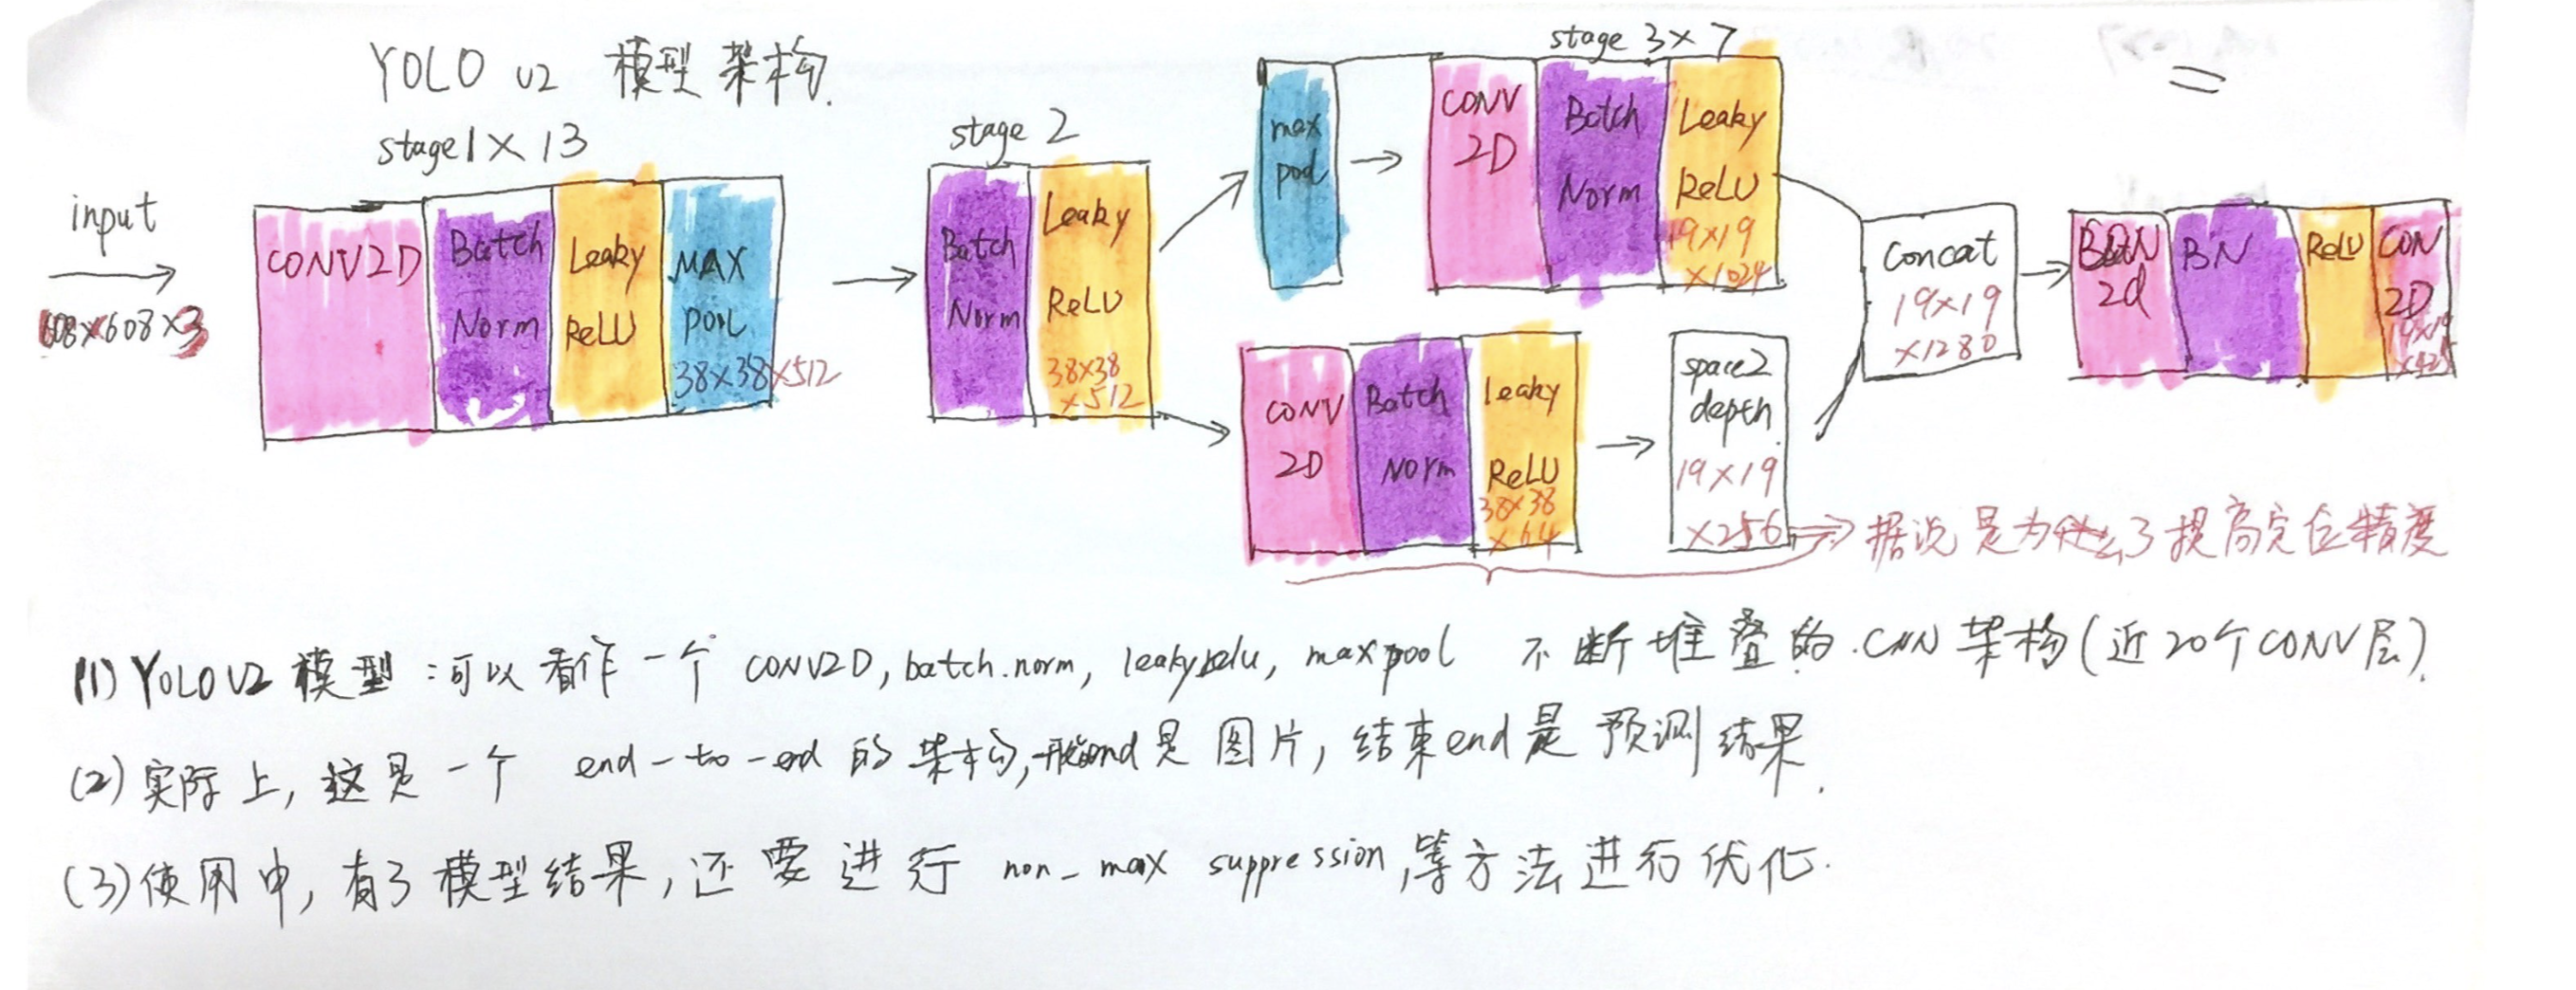 YOLO v2 模型架构.
stage1×13
input
608×608×3
CONV2D
Batch
Norm
Leaky
ReLU
MAX
POOL
38×38×512
stage 2
Batch
Norm
Leaky
ReLU
38×38
×512
max
pool
stage 3×7
CONV
2D
Batch
Norm
Leaky
ReLU
19×19
×1024
CONV
2D
Batch
Norm
leaky
ReLU
38×38
×64
space2
depth
19×19
×256
据说是为了提高定位精度
Concat
19×19
×1280
2d
BN
ReLU
CON
2D
19×19
×425
(1) YOLO V2 模型:可以看作一个 CONV2D, batch.norm, leakyrelu, maxpool 不断堆叠的.CNN架构(近20个CONV层).
(2)实际上,这是一个 end-to-end 的架构,开始end是图片,结束end是预测结果.
(3)使用中,有了模型结果,还要进行 non_max suppression,等方法进行优化.